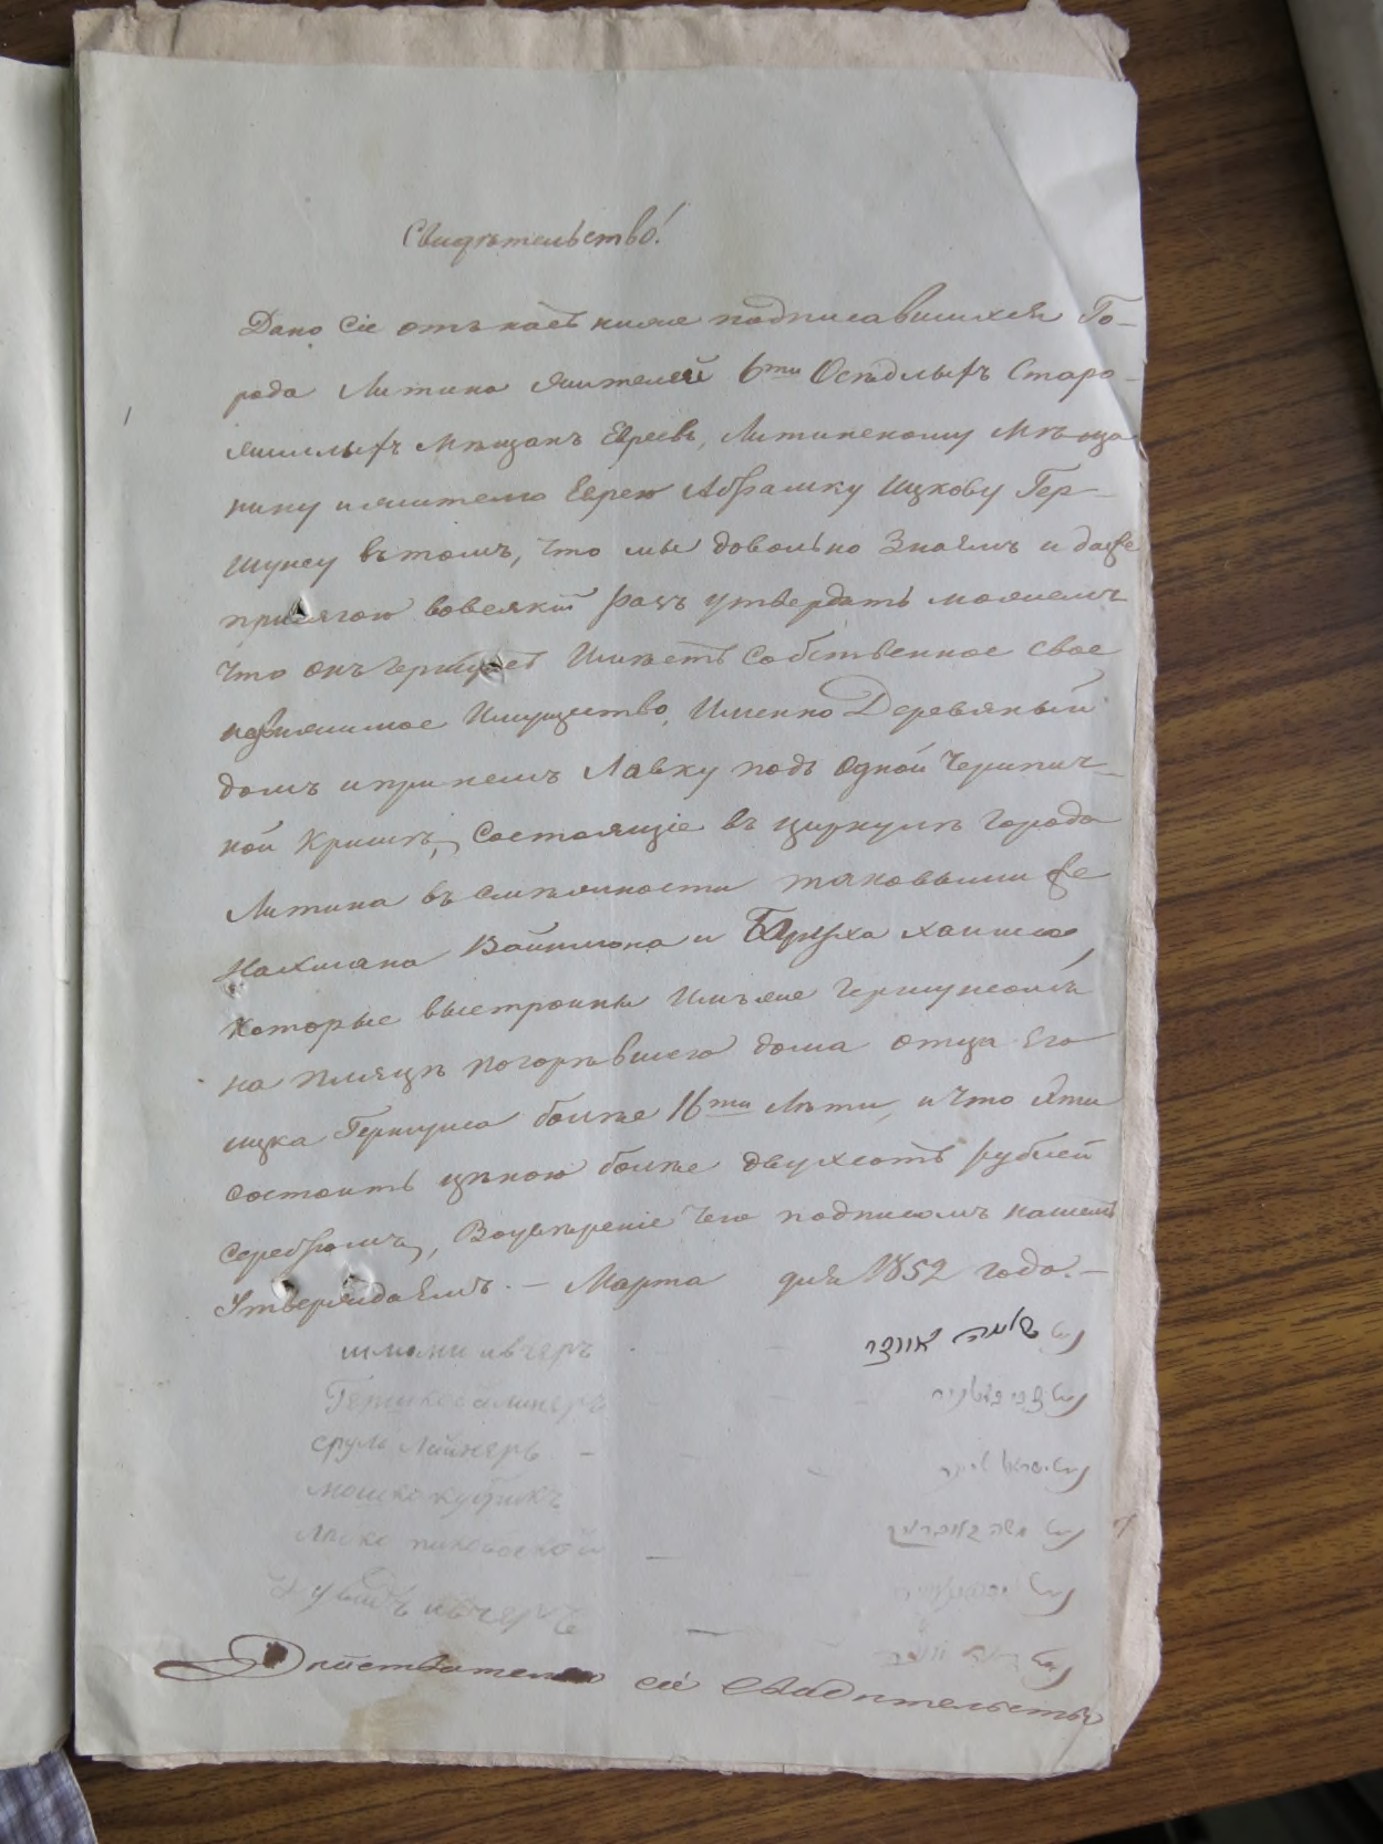 Свидѣтельство!
Дано сіе отъ насъ ниже подписавшихся Го-
рода Литина жителей 6ти Осѣдлыхъ Старо-
жилыхъ Мѣщанъ Евреевъ, Литинскому Мѣща
нину и жителю Еврею Абрамку Ицкову Гер-
шунсу въ томъ, что мы довольно Знаемъ и даже
присягою вовсякій разъ утвердить можемъ
что онъ Гершунсъ Имѣетъ Собственное свое
недвижимое Имущество, Именно Деревяный
домъ и при немъ Лавку подъ одной Черепич-
ной Кришѣ, Состоящіе въ циркулѣ города
Литина въ смѣжности таковымиже
Нахмана Войтмана и Боруха
которые выстроины Имъже Гершунсомъ
на пляцѣ погорѣвшего дома отца Его
ицка Гершунса болѣе 16ти лѣтъ, и что Эти
состоитъ цѣною болѣе двухсотъ рублей
серебромъ, Воувѣреніе чего подписомъ нашимъ
Утверждаемъ. — Марта дня 1852 года. —
נאם שלמה
נאם
сруль Лайнеръ - נאם ישראל
мошко נאם משה
נאם
נאם
Дѣйствительно сіе Свидѣтельство